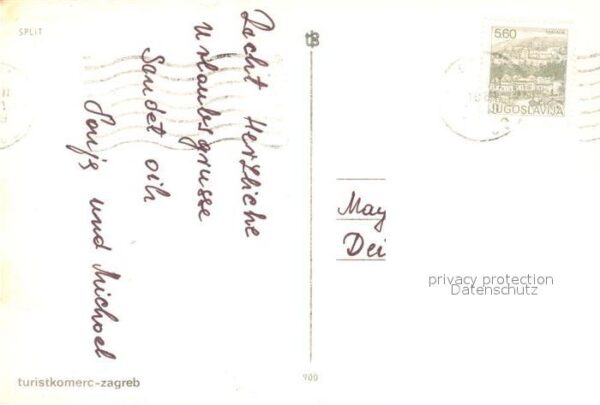 SPLIT
Recht Herzliche
Urlaubsgrüsse
Sendet dih
Tanja und Michael
turistkomerc-zagreb
900
5.60
JUGOSLAVIJA
May
Dei
privacy protection
Datenschutz